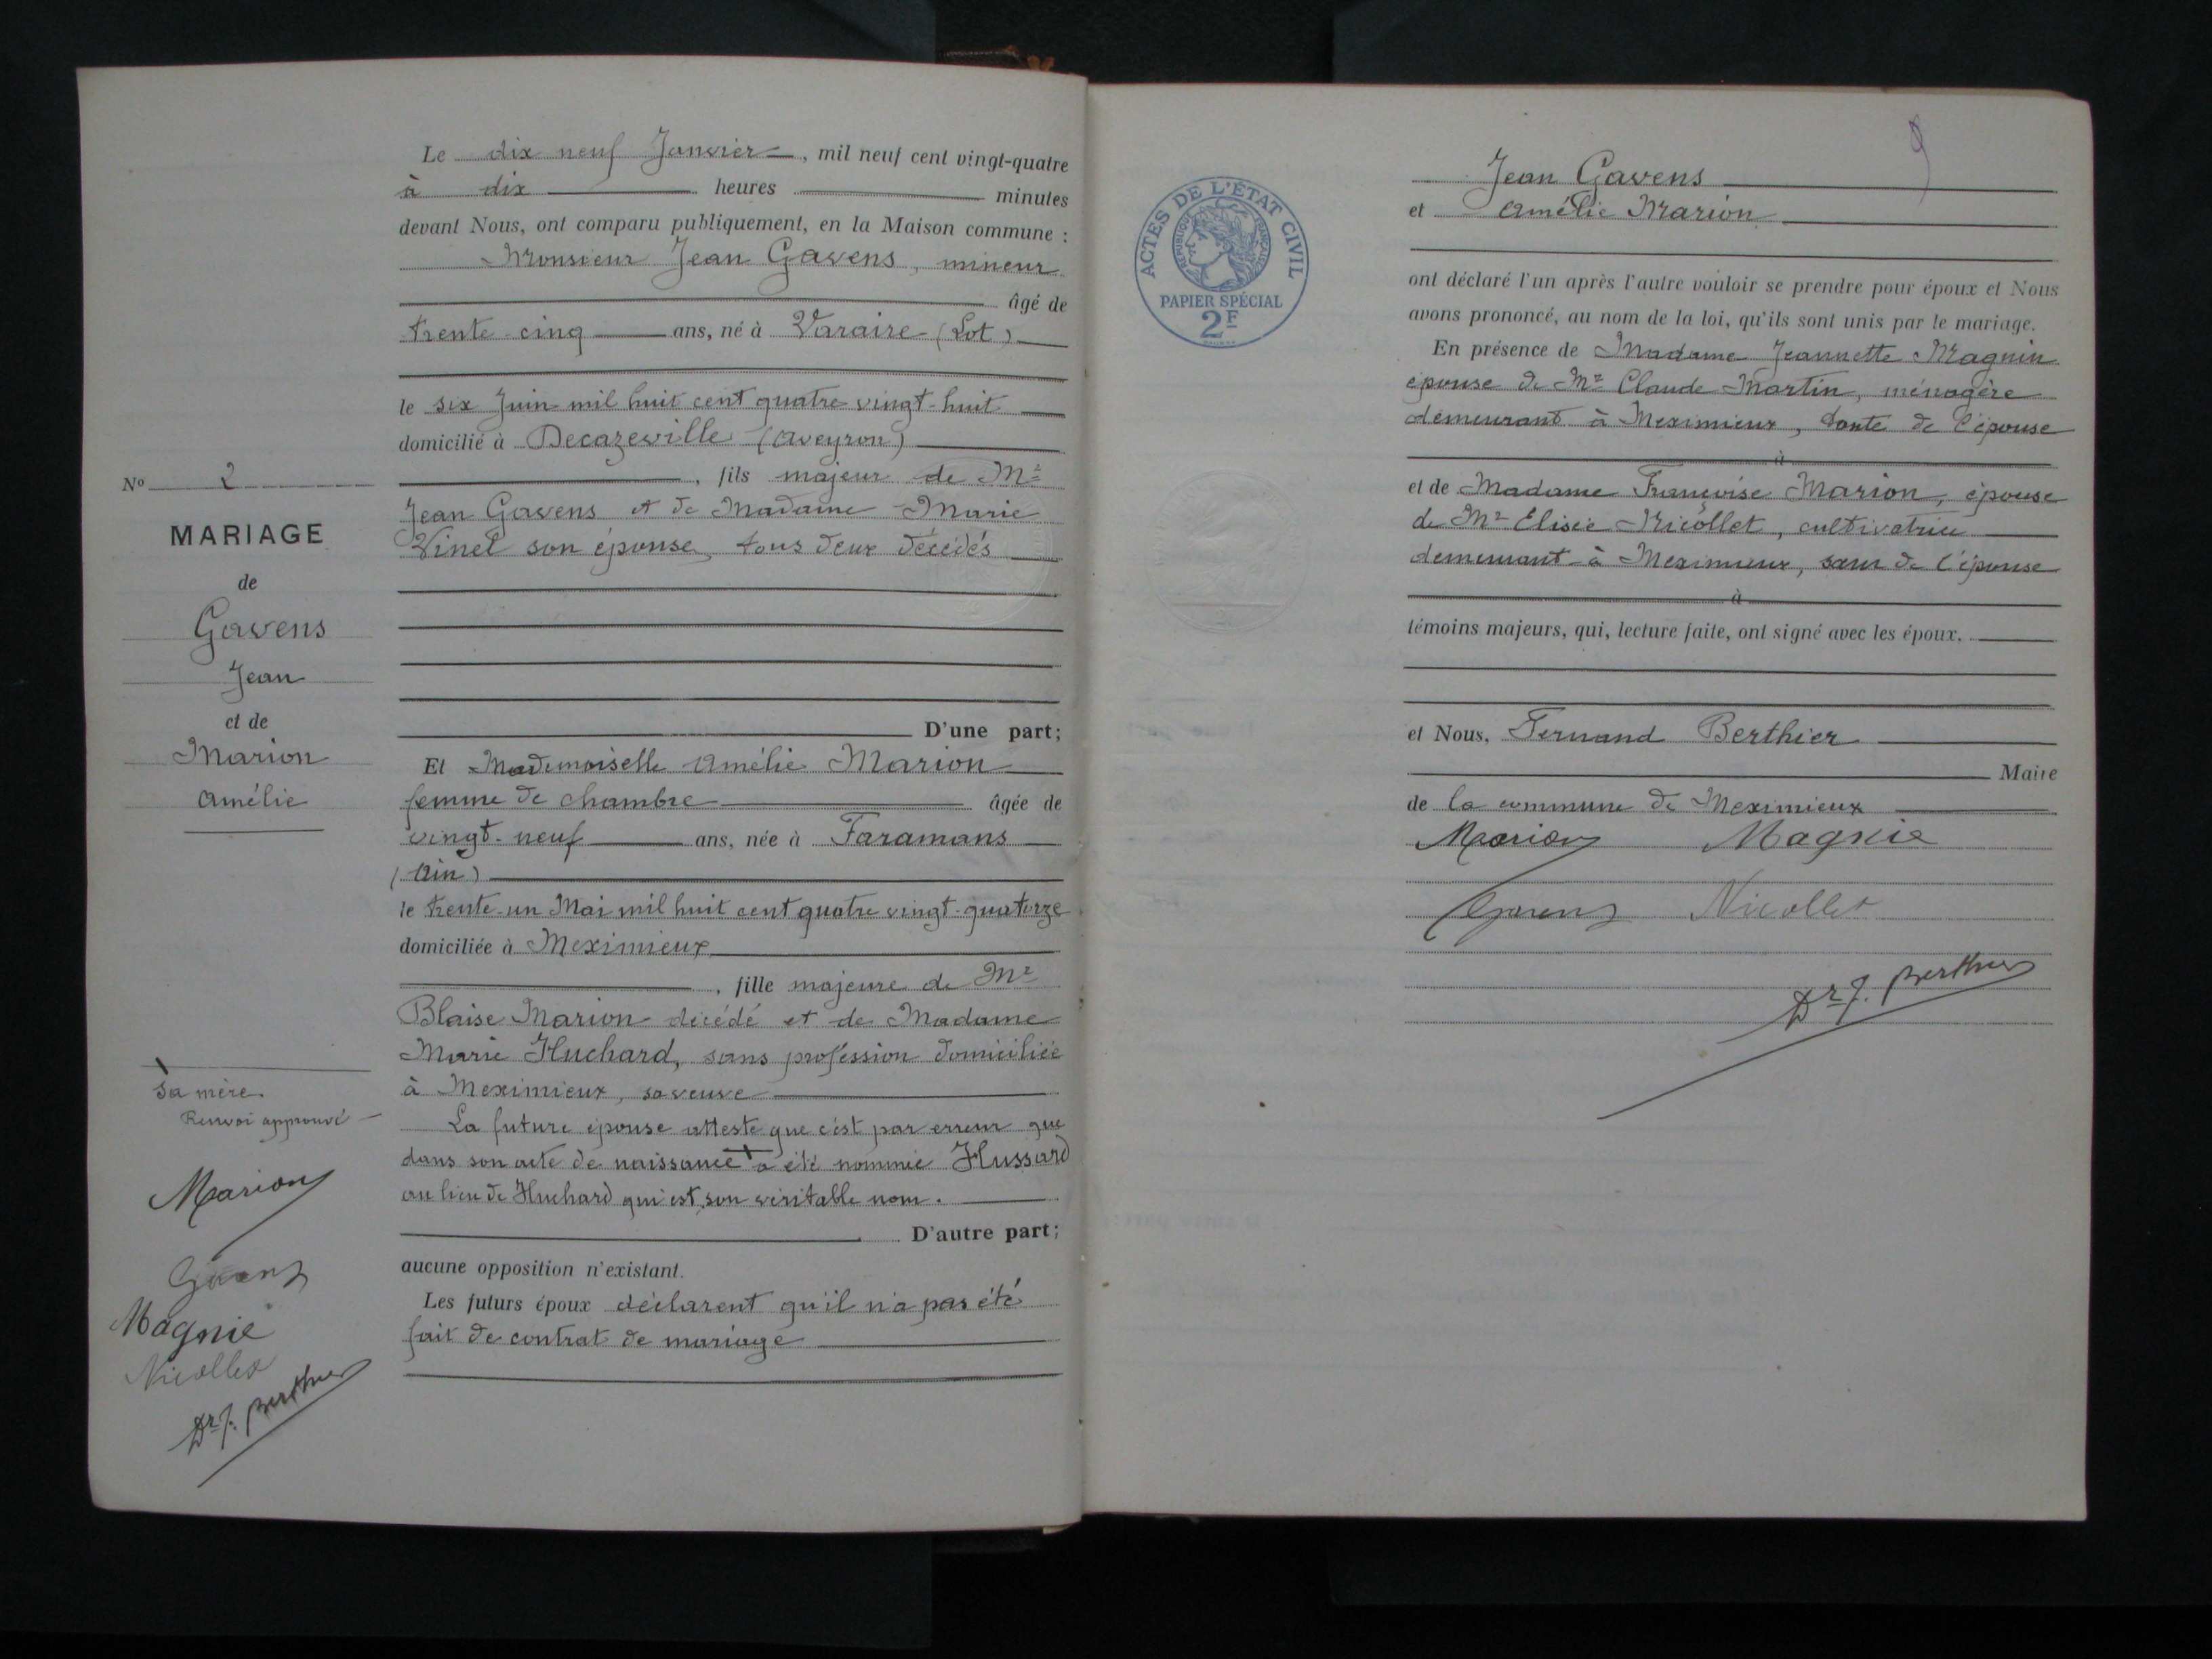 Le dix neuf Janvier, mil neuf cent vingt-quatre
à dix heures minutes
devant Nous, ont comparu publiquement, en la Maison commune :
Monsieur Jean Gavens, mineur
âgé de
trente-cinq ans, né à Varaire (Lot)
le six Juin mil huit cent quatre vingt-huit
domicilié à Decazeville (Aveyron)
, fils majeur de Mr
Jean Gavens et de Madame Marie
Vinel son épouse, tous deux décédés
D'une part;
Et Mademoiselle Amélie Marion
femme de chambre âgée de
vingt-neuf ans, née à Faramans
(Ain)
le trente-un Mai mil huit cent quatre vingt-quatorze
domiciliée à Meximieux
, fille majeure de Mr
Blaise Marion décédé et de Madame
Marie Huchard, sans profession domiciliée
à Meximieux, sa veuve
La future épouse atteste que c'est par erreur que
dans son acte de naissance a été nommée Hussard
au lieu de Huchard qui est son véritable nom.
D'autre part;
aucune opposition n'existant.
Les futurs époux déclarent qu'il n'a pas été
fait de contrat de mariage
No 2
MARIAGE
de
Gavens
Jean
et de
Marion
Amélie
sa mère.
Renvoi approuvé
Marion
Gavens
Magnie
Nicollet
Dr F. Berthier
ACTES DE L'ÉTAT CIVIL
RÉPUBLIQUE FRANÇAISE
PAPIER SPÉCIAL
2F
9
Jean Gavens
et Amélie Marion
ont déclaré l'un après l'autre vouloir se prendre pour époux et Nous
avons prononcé, au nom de la loi, qu'ils sont unis par le mariage.
En présence de Madame Jeannette Magnin
épouse de Mr Claude Martin, ménagère
demeurant à Meximieux, tante de l'épouse
à
et de Madame Françoise Marion, épouse
de Mr Elisée Nicollet, cultivatrice
demeurant à Meximieux, sœur de l'épouse
à
témoins majeurs, qui, lecture faite, ont signé avec les époux.
et Nous, Fernand Berthier
Maire
de la commune de Meximieux
Marion Magnie
Gavens Nicollet
Dr F. Berthier